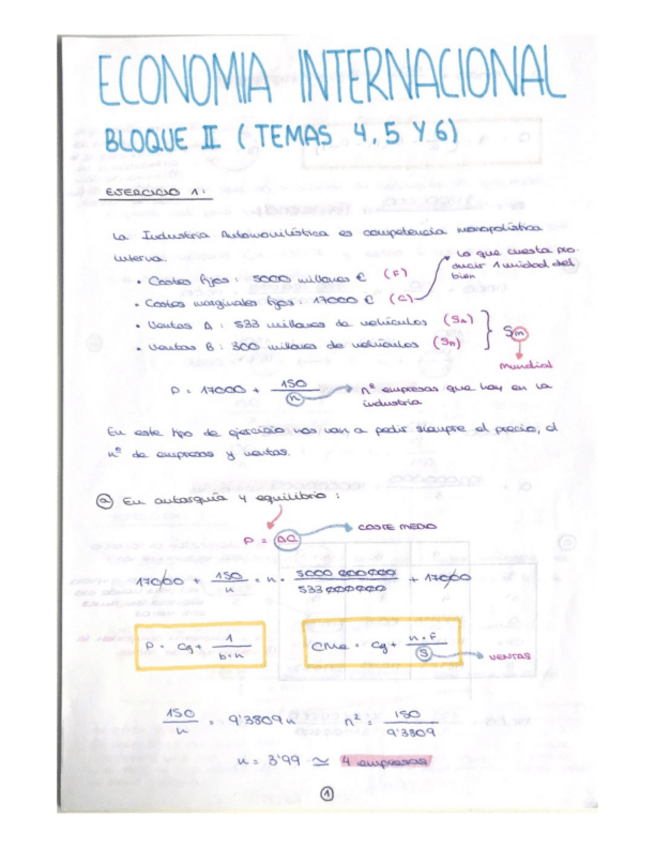 ECONOMIA INTERNACIONAL
BLOQUE II (TEMAS 4, 5 Y 6)
EJERCICIO 1:
La Industria Automovilística es competencia monopolística
interna.
lo que cuesta pro-
ducir 1 unidad del
bien
• Costes fijos: 5000 millones € (F)
• Costes marginales fijos: 17000 € (C)
• Ventas A: 533 millones de vehículos (SA)
• Ventas B: 300 millones de vehículos (SB)
Sm
mundial
P = 17000 + 150/n
nº empresas que hay en la
industria
En este tipo de ejercicio nos van a pedir siempre el precio, el
nº de empresas y ventas.
a) En autarquía y equilibrio:
P = AC
COSTE MEDIO
17000 + 150/n = n · 5000 000000/533 000000 + 17000
P = Cg + 1/b·n
CMe = Cg + n·F/S
VENTAS
150/n = 9'3809 n   n² = 150/9'3809
n = 3'99 ≃ 4 empresas
1